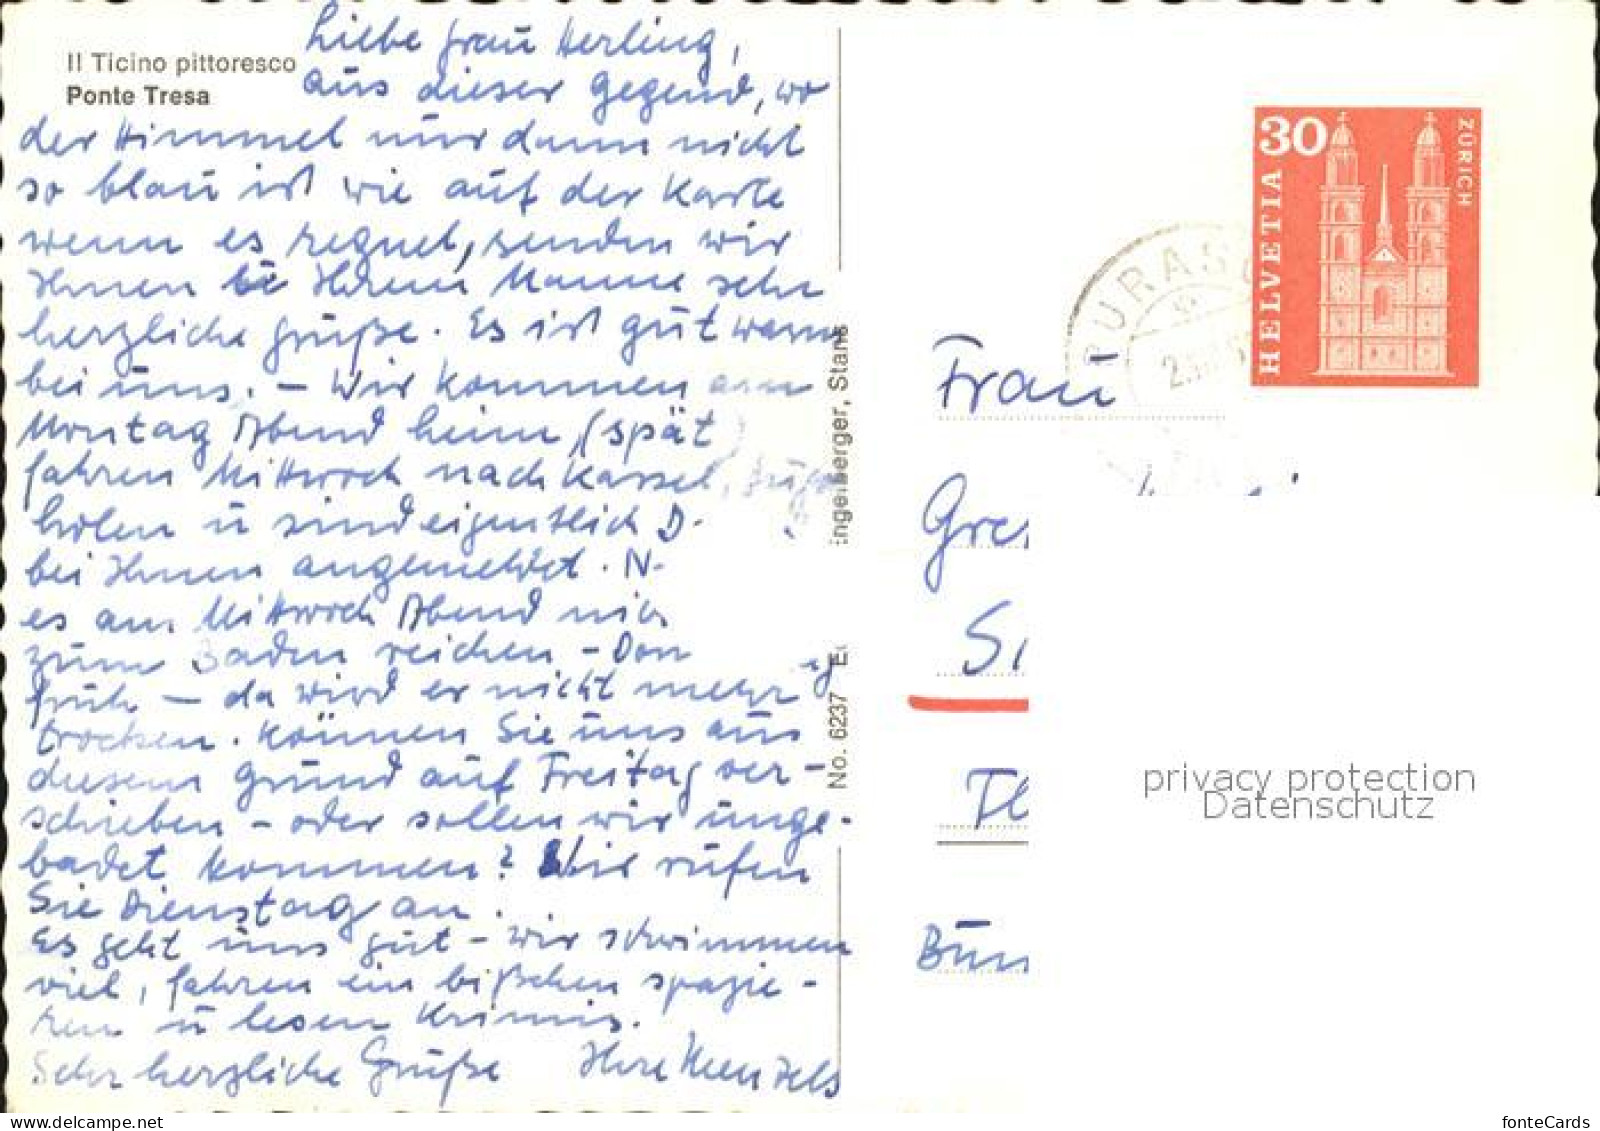 Il Ticino pittoresco
Ponte Tresa
Liebe Frau Herling,
aus dieser Gegend, wo
der Himmel nur dann nicht
so blau ist wie auf der Karte
wenn es regnet, senden wir
Ihnen Ihrem Manne sehr
herzliche Grüße. Es ist gut warm
bei uns. – Wir kommen am
Montag Abend heim, (spät
fahren Mittwoch nach Kassel,
holen u sind eigentlich D-
bei Ihnen angemeldet. N-
es am Mittwoch Abend nich
zum Baden reichen – Don
früh – da wird er nicht mehr
trocken. Können Sie uns aus
diesem Grund auf Freitag ver-
schieben – oder sollen wir unge-
badet kommen? Wir rufen
Sie Dienstag an.
Es geht uns gut – wir schwimmen
viel, fahren ein bißchen spazie-
ren u lesen Krimis.
Sehr herzliche Grüße Ihre
ngelberger, Stans
No. 6237
HELVETIA
30
ZÜRICH
PURAS
Frau
Gre
S
Bün
privacy protection
Datenschutz
fonteCards